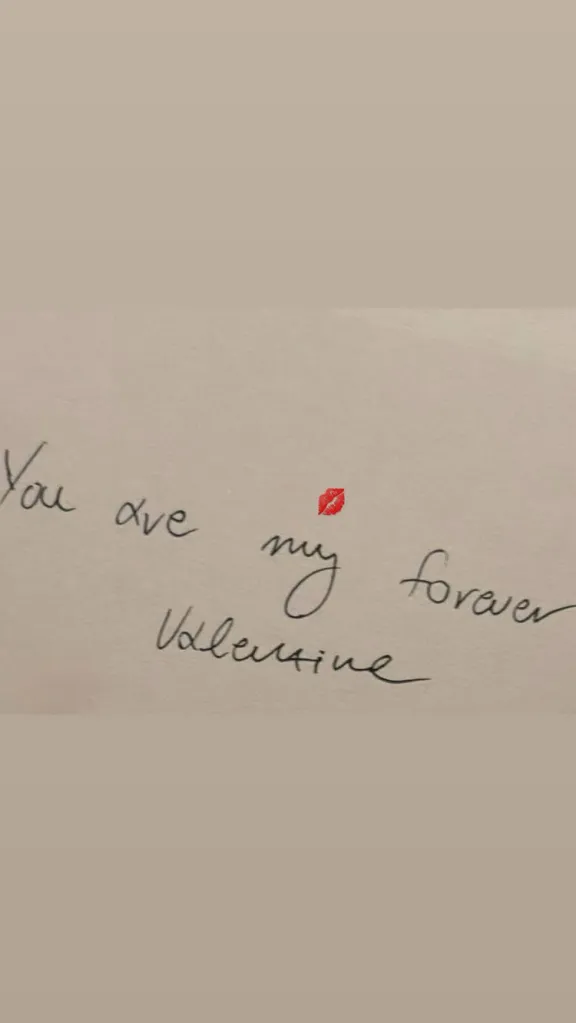 You are my forever
Valentine